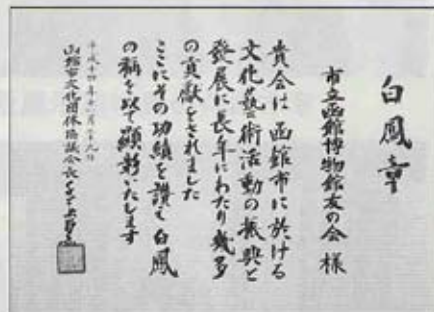 白鳳章
市立函館博物館友の会 様
貴会は函館市に於ける
文化藝術活動の振興と
発展に長年にわたり幾多
の貢献をされました
ここにその功績を讃え白鳳
の称を以て顕彰いたします
平成十四年十一月二十九日
函館市文化団体協議会長